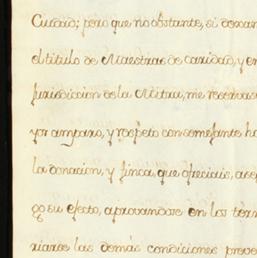 Ciudad; pero que no obstante, si desean
el titulo de Maestras de caridad, y en
Jurisdiccion de la Mitra, me reserva
yor amparo, y respeto con semejante
la donacion, y finca, que ofreciais,
go su efecto, aprovandose en los
riarse las demás condiciones